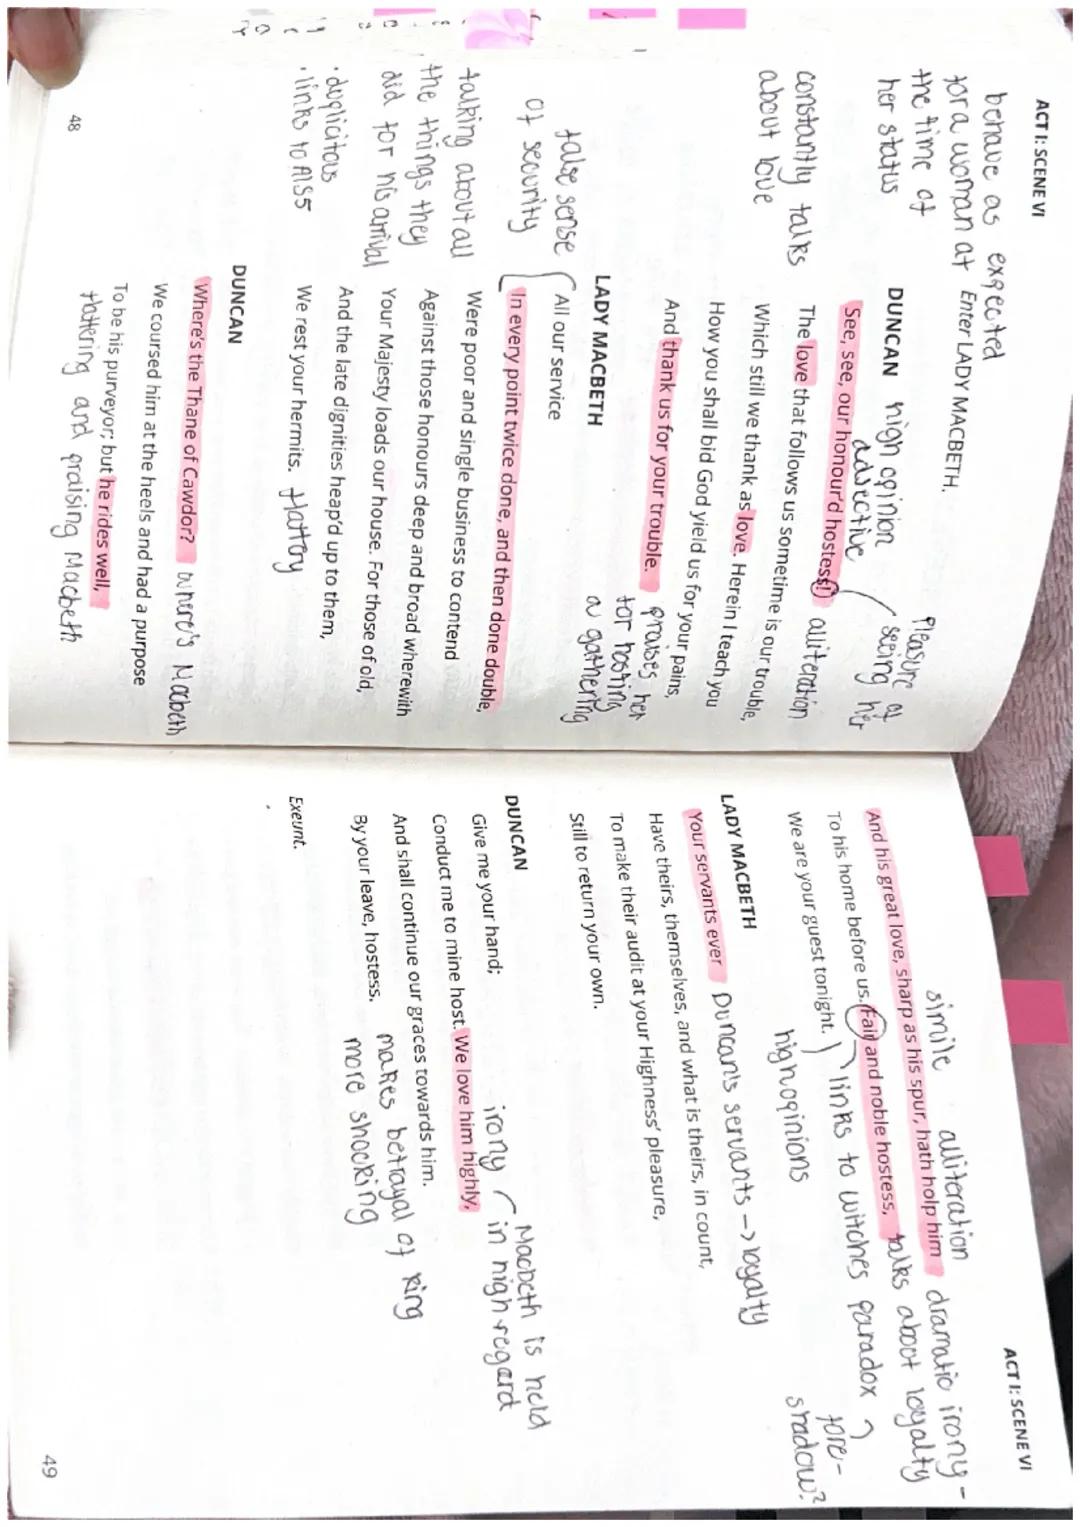 ACT I: SCENE VI
behave as expected
for a woman at
the time of
her status
Enter LADY MACBETH.
DUNCAN
high opinion
adjective
pleasure of
seeing her
See, see, our honour'd hostess!
alliteration
constantly talks
about love
The love that follows us sometime is our trouble,
Which still we thank as love. Herein I teach you
How you shall bid God yield us for your pains,
And thank us for your trouble.
praises her
for hosting
a gathering
LADY MACBETH
false sense
of security
All our service
In every point twice done, and then done double,
Were poor and single business to contend
Against those honours deep and broad wherewith
Your Majesty loads our house. For those of old,
And the late dignities heap'd up to them,
We rest your hermits.
flattery
talking about all
the things they
did for his arrival
• duplicitous
• links to A1S5
DUNCAN
Where's the Thane of Cawdor?
where's Macbeth
We coursed him at the heels and had a purpose
To be his purveyor; but he rides well,
flattering and praising Macbeth
48
ACT I: SCENE VI
simile
alliteration
dramatic irony -
talks about loyalty
And his great love, sharp as his spur, hath holp him
To his home before us. Fair and noble hostess,
We are your guest tonight.
links to witches paradox
fore-
shadow?
high opinions
LADY MACBETH
Your servants ever
Duncan's servants -> loyalty
Have theirs, themselves, and what is theirs, in count,
To make their audit at your Highness' pleasure,
Still to return your own.
DUNCAN
Give me your hand;
Conduct me to mine host. We love him highly,
irony
Macbeth is held
in high regard
And shall continue our graces towards him.
By your leave, hostess.
makes betrayal of king
more shocking
Exeunt.
49